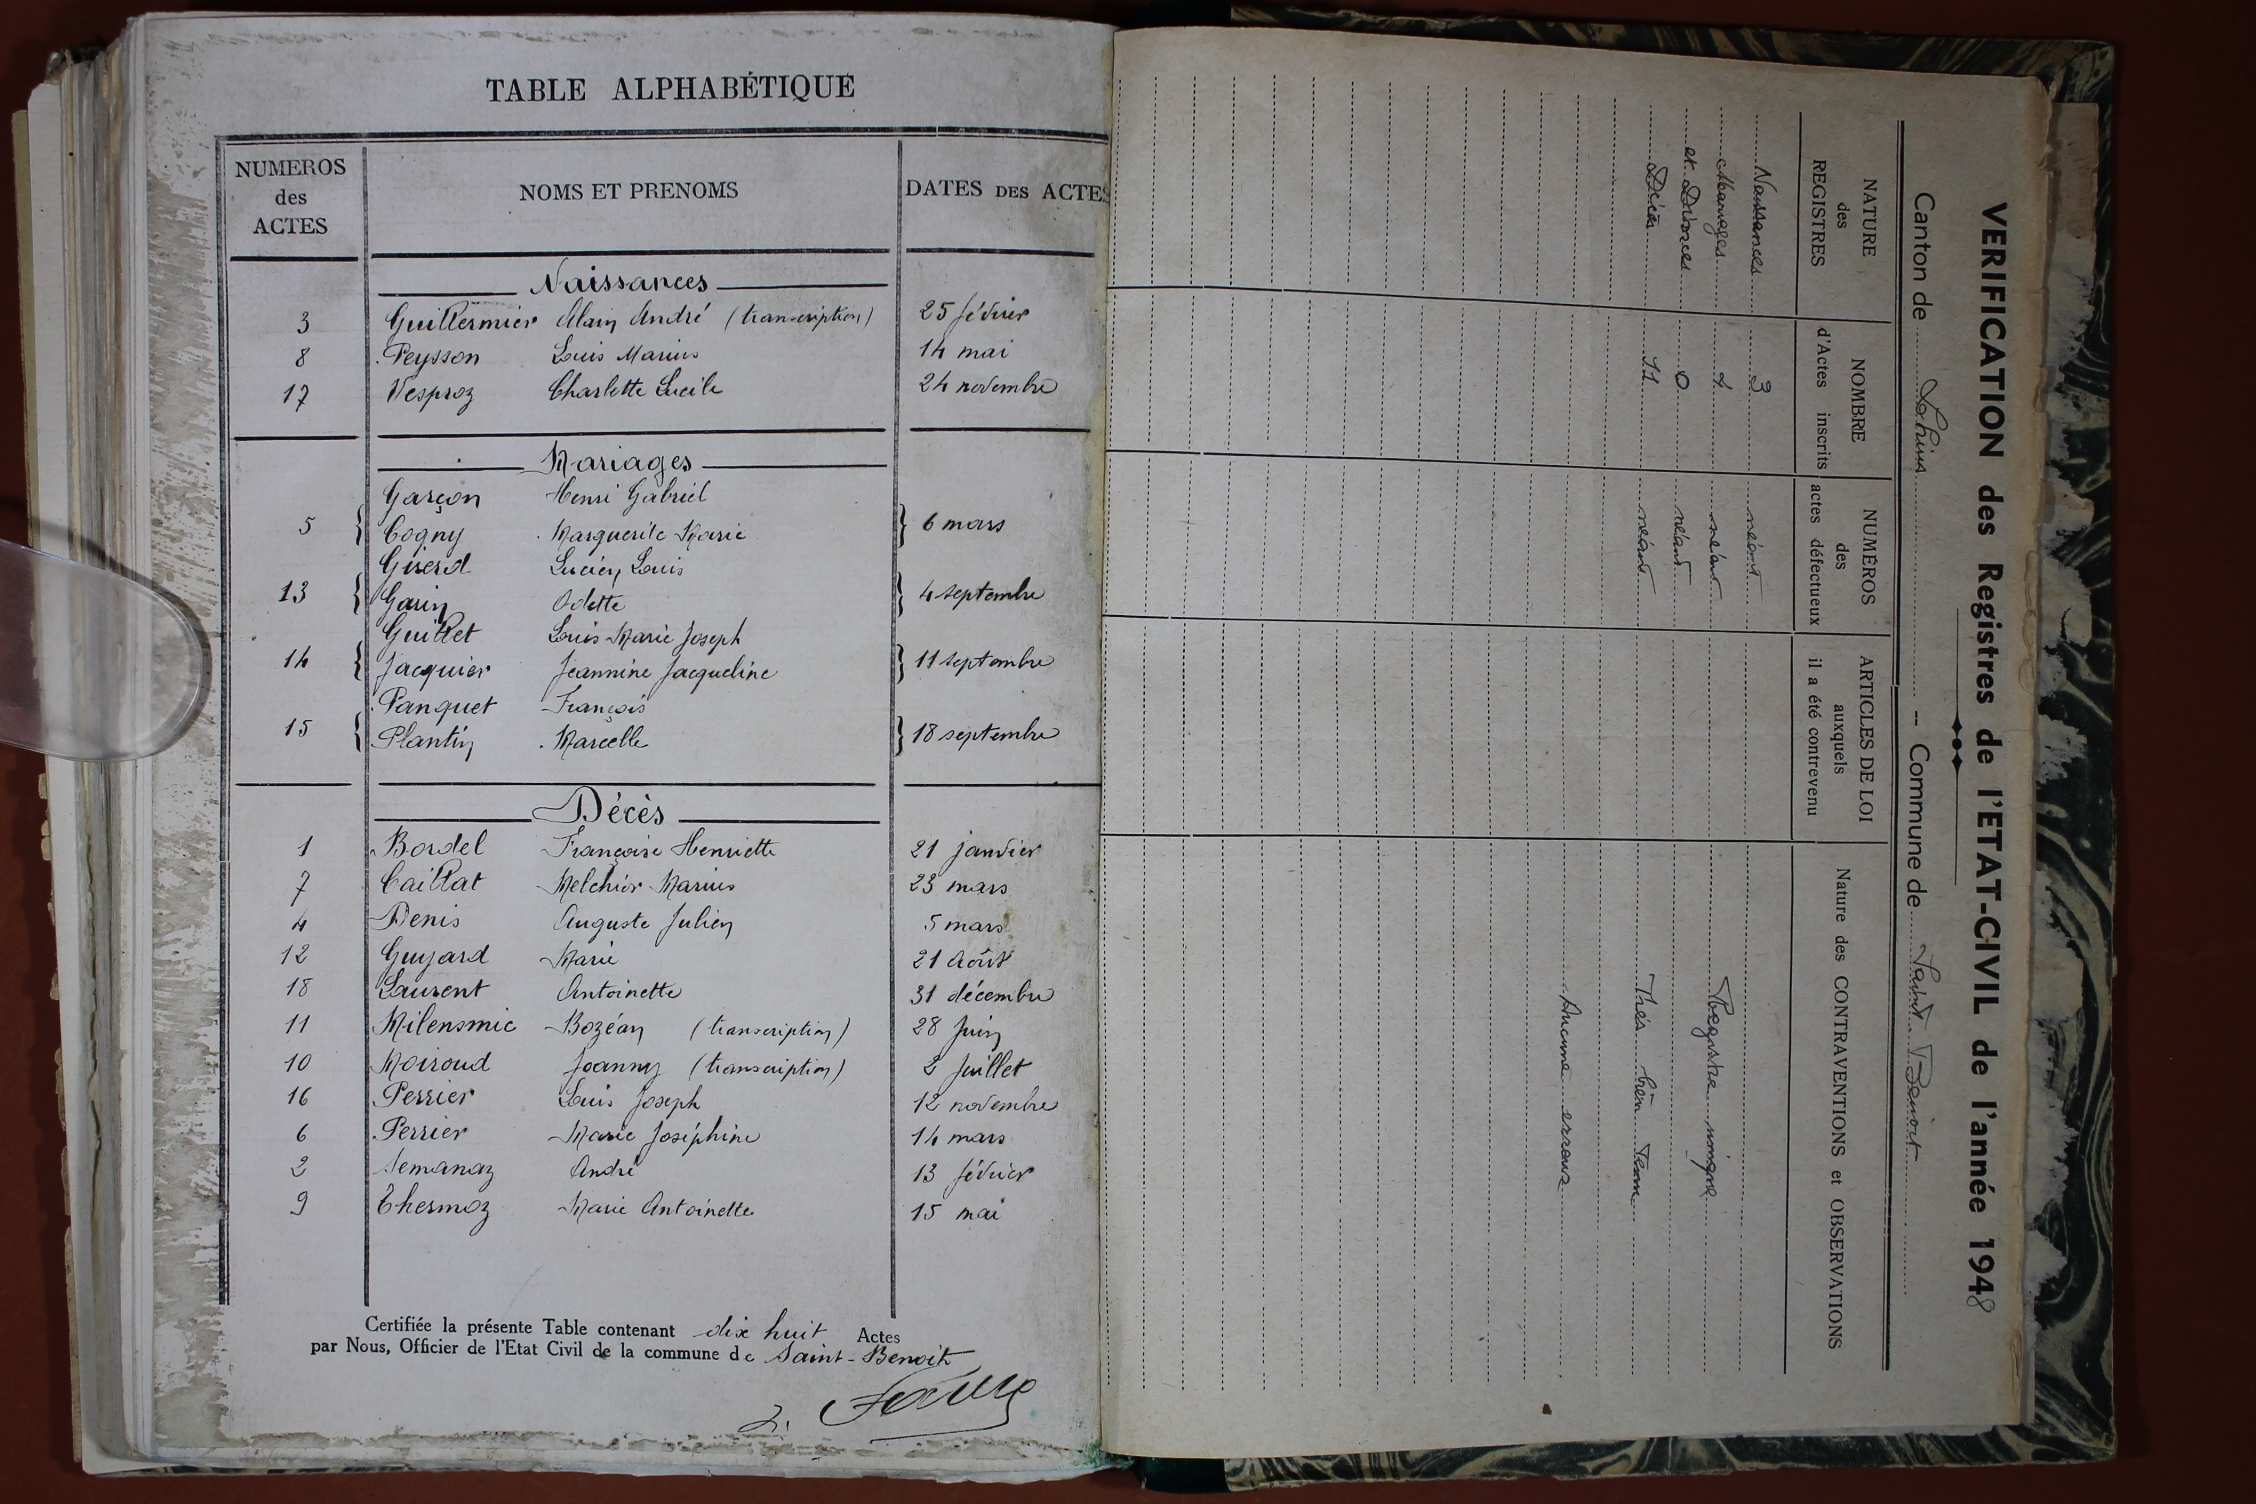 TABLE ALPHABÉTIQUE
NUMEROS des ACTES NOMS ET PRENOMS DATES DES ACTES
Naissances
3 Guillermier Alain André (transcription) 25 février
8 Peysson Louis Marius 14 mai
17 Vesproz Charlotte Lucile 24 novembre
Mariages
Garçon Henri Gabriel
5 } Cogny Marguerite Marie } 6 mars
Girerd Lucien Louis
13 } Garin Odette } 4 septembre
Guillet Louis Marie Joseph
14 { Jacquier Jeannine Jacqueline } 11 septembre
Panquet François
15 } Plantin Marcelle } 18 septembre
Décès
1 Bordel Françoise Henriette 21 janvier
7 Caillat Melchior Marius 23 mars
4 Denis Auguste Julien 5 mars
12 Guyard Marie 21 Août
18 Laurent Antoinette 31 décembre
11 Milensmic Bozéan (transcription) 28 Juin
10 Moiroud Joanny (transcription) 2 Juillet
16 Perrier Louis Joseph 12 novembre
6 Perrier Marie Joséphine 14 mars
2 Semanaz André 13 février
9 Thermoz Marie Antoinette 15 mai
Certifiée la présente Table contenant dix huit Actes
par Nous, Officier de l'Etat Civil de la commune de Saint-Benoit
VERIFICATION des Registres de l'ETAT-CIVIL de l'année 1948
Canton de Lhuis -- Commune de Saint Benoit
NATURE des REGISTRES
NOMBRE d'Actes inscrits
NUMÉROS des actes défectueux
ARTICLES DE LOI auxquels il a été contrevenu
Nature des CONTRAVENTIONS et OBSERVATIONS
Naissances 3 néant
Mariages 4 néant Registre unique
et Divorces 0 néant
Décès 11 néant Très bien tenu
Aucune erreur